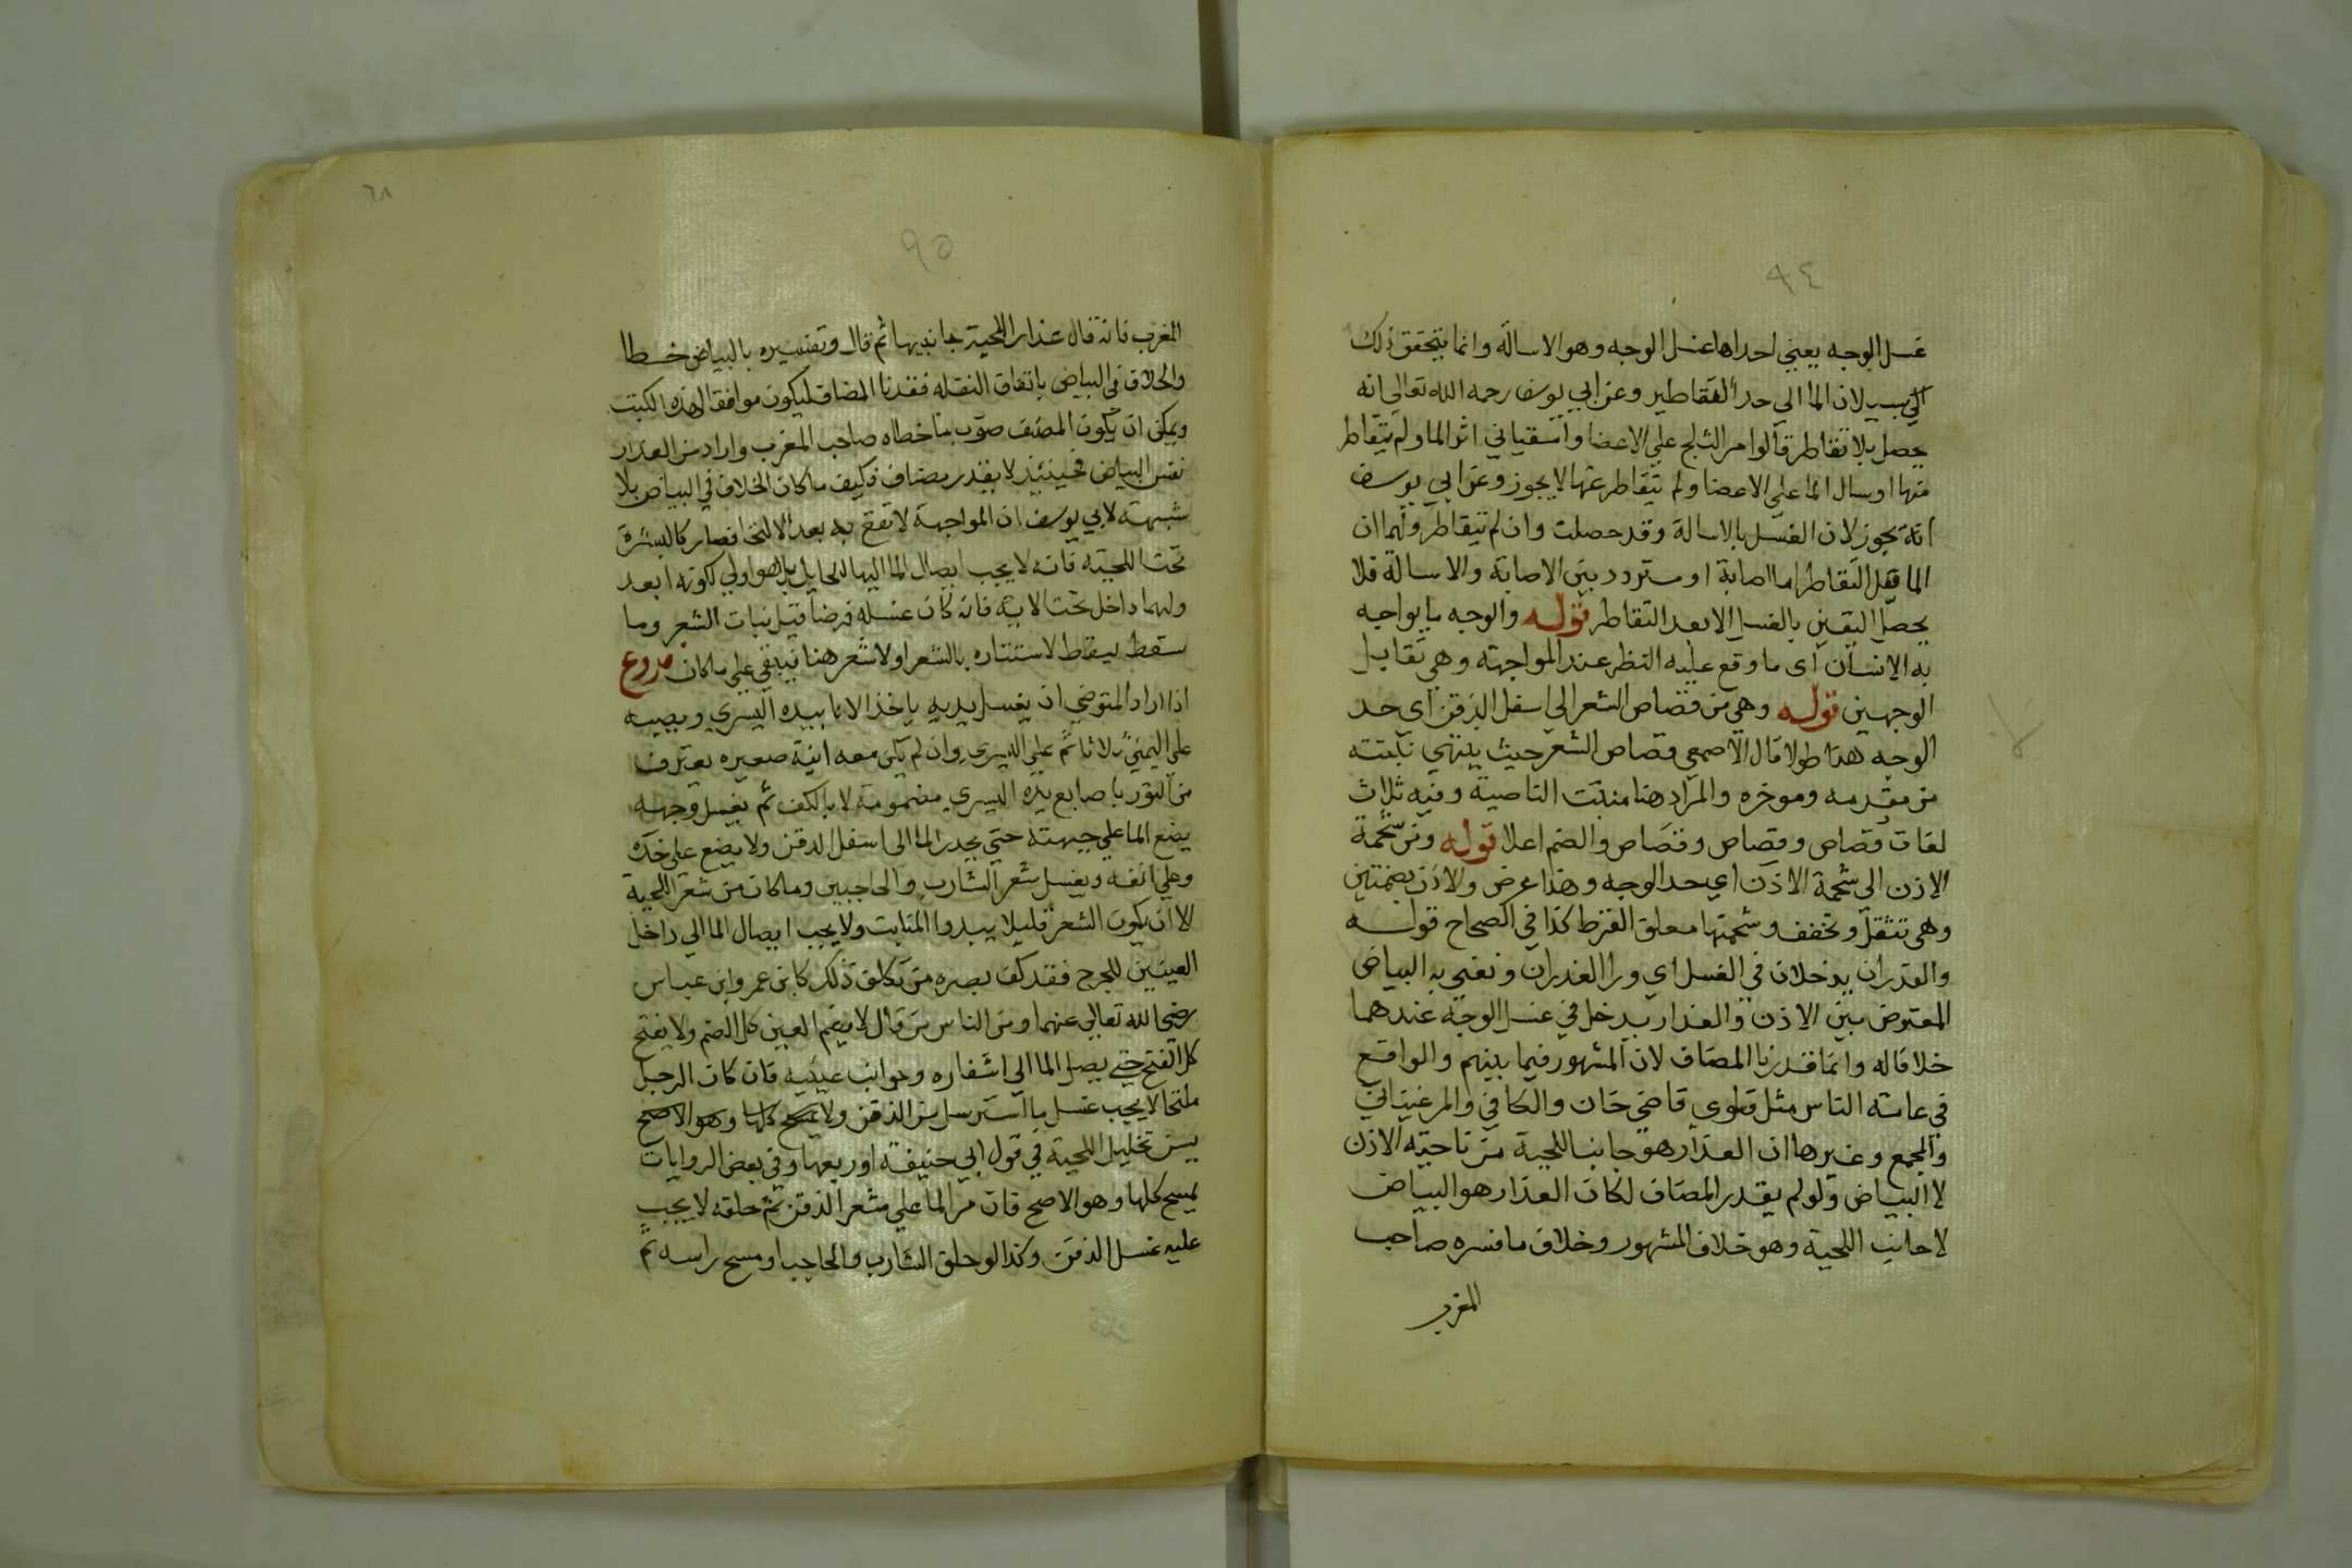 ٩٤
غسل الوجه يعني احداها غسل الوجه وهو الاسالة وانما يتحقق ذلك
الي يسيلان الما الي حد القاطير وعن ابي يوسف رحمه الله تعالي انه
يحصل بلا تقاطر قالوا مر الثلج علي الاعضا واسقياني اثر الما ولم يتقاطر
منها اوسال الما علي الاعضا ولم تتقاطر عنها لا يجوز وعن ابي يوسف
انه يجوز لان الغسل بالاسالة وقد حصلت وان لم تتقاطر ولهما ان
الما قبل التقاطر اما اصابة او متردد بين الاصابة والاسالة فلا
يحصل اليقين بالغسل الا بعد التقاطر قوله والوجه ما يواجه
به الانسان اي ما وقع عليه النظر عند المواجهة وهي تقابل
الوجهين قوله وهي من قصاص الشعر الي اسفل الذقن اي حد
الوجه هذا طولا قال الاصمعي قصاص الشعر حيث ينتهي نبتته
من مقدمه وموخره والمراد هنا منبت الناصية وفيه ثلاث
لغات قصاص وقصاص وقصاص والضم اعلا قوله ومن شحمة
الاذن الي شحمة الاذن اي حد الوجه وهذا عرض والاذن بضمتين
وهي تتثقل وتخفف وشحمتها معلق القرط كذا في الصحاح قوله
والعذران يدخلان في الغسل اي ورا العذران ونعني به البياض
المعترض بين الاذن والعذار يدخل في غسل الوجه عندهما
خلافا له وانما قدرنا المضاف لان المشهور فيما بينهم والواقع
في عامته الناس مثل فتاوي قاضي خان والكافي والمرغيناني
والمجمع وغيرها ان العذار هو جانب اللحية من ناحية الاذن
لا البياض ولو لم يقدر المضاف لكان العذار هو البياض
لا جانب اللحية وهو خلاف المشهور وخلاف ما فسره صاحب
المغرب
٦٨
٩٥
المغرب فانه قال عذار اللحية جانبيها ثم قال وتفسيره بالبياض خطا
والخلاف في البياض باتفاق النقله فقدرنا المضاف ليكون موافقا لهذه الكتب
ويمكن ان يكون المصنف صوب ما خطاه صاحب المغرب واراد من العذار
نفس البياض فحينئذ لا يقدر مضاف وكيف ما كان الخلاف في البياض بلا
شبهة لابي يوسف ان المواجهة لا تقع به بعد الالتحا فصار كالبشرة
تحت اللحية فانه لا يجب ايصال الما اليها للحايل بل هو اولي لكونه ابعد
ولهما داخل تحت الاية فانه كان غسله فرضا قبل نبات الشعر وما
سقط ليقاط لاستتاره بالشعر اولا شعر هنا فيبقي علي ما كان فروع
اذا اراد المتوضي ان يغسل يديه ياخذ الانا بيده اليسري ويصبه
علي اليمني ثلاثا ثم علي اليسري وان لم يكن معه انية صغيره يغترف
من التور باصابع يده اليسري مضمومة لا بالكف ثم يغسل وجهه
يضع الما علي جبهته حتي يحدر الما الي اسفل الذقن ولا يضع علي خده
وعلي انفه ويغسل شعر الشارب والحاجبين وما كان من شعر اللحية
الا ان يكون الشعر قليلا يبدوا المنابت ولا يجب ايصال الما الي داخل
العينين للجرح فقد كف بصره من تكلف ذلك كابن عمر وابن عباس
رضي الله تعالي عنهما ومن الناس من قال لا يضم العين كل الضم ولا يفتح
كل الفتح حتي يصل الما الي اشفاره وجوانب عينيه فان كان الرجل
ملتحا لا يجب غسل ما استرسل من الذقن ولا يمسح كلها وهو الاصح
يسن تخليل اللحية في قول ابي حنيفة او ربعها وفي بعض الروايات
يمسح كلها وهو الاصح فان مر الما علي شعر الذقن ثم حلقه لا يجب
عليه غسل الذقن وكذا لو حلق الشارب والحاجب او مسح راسه ثم